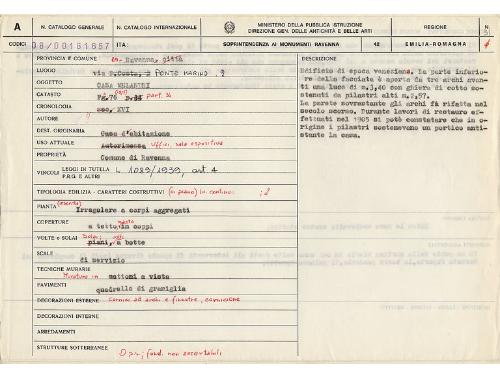 A
N. CATALOGO GENERALE
N. CATALOGO INTERNAZIONALE
MINISTERO DELLA PUBBLICA ISTRUZIONE
DIREZIONE GEN. DELLE ANTICHITÀ E BELLE ARTI
REGIONE
N.
CODICI
08/00161657
ITA:
SOPRINTENDENZA AI MONUMENTI RAVENNA
42
EMILIA-ROMAGNA
PROVINCIA E COMUNE
Ravenna, città
LUOGO
via P.Costa, 2 PONTE MARINO 9
OGGETTO
CASA MELANDRI
CATASTO
Fg. 76 part. 36
CRONOLOGIA
sec. XVI
AUTORE
DEST. ORIGINARIA
Casa d'abitazione
USO ATTUALE
Autorimessa Uffici, sala espositiva
PROPRIETÀ
Comune di Ravenna
VINCOLI
LEGGI DI TUTELA
L. 1089/1939, art. 4
P.R.G. E ALTRI
TIPOLOGIA EDILIZIA - CARATTERI COSTRUTTIVI
PIANTA
Irregolare a corpi aggregati
COPERTURE
a tetto, in coppi
VOLTE o SOLAI
piani, a botte
SCALE
di servizio
TECNICHE MURARIE
Muratura in mattoni a vista
PAVIMENTI
quadrelle di graniglia
DECORAZIONI ESTERNE
cornice ad archi e finestre, cornicione
DECORAZIONI INTERNE
ARREDAMENTI
STRUTTURE SOTTERRANEE
fond. non accertabili
DESCRIZIONE
Edificio di epoca veneziana. La parte inferio-
re della facciata è aperta da tre archi aven-
ti una luce di m.3,40 con ghiere di cotto so-
stenuti da pilastri alti m.2,57.
La parete sovrastante gli archi fu rifatta nel
secolo scorso. Durante lavori di restauro ef-
fettuati nel 1905 si potè constatare che in o-
rigine i pilastri sostenevano un portico anti-
stante la casa.